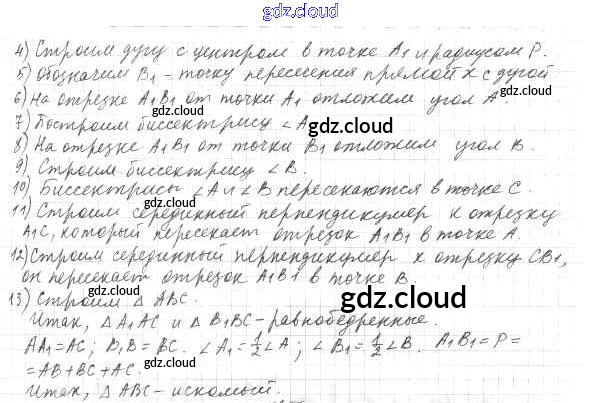 gdz.cloud
4) Строим дугу с центром в точке A₁ и радиусом P.
5) Обозначим B₁ – точку пересечения прямой x с дугой
6) На отрезке A₁B₁ от точки A₁ отложим угол A.
gdz.cloud
7) Построим биссектрису ∠A
gdz.cloud
8) На отрезке A₁B₁ от точки B₁ отложим угол B.
9) Строим биссектрису ∠B.
gdz.cloud
10) Биссектрисы ∠A и ∠B пересекаются в точке C.
gdz.cloud
11) Строим серединный перпендикуляр к отрезку
A₁C, который пересекает отрезок A₁B₁ в точке A.
gdz.cloud
12) Строим серединный перпендикуляр к отрезку CB₁,
он пересекает отрезок A₁B1 в точке B
gdz.cloud
13) Строим △ ABC.
Итак, △ A₁AC и △ B₁BC – равнобедренные.
AA₁=AC; B₁B = BC. ∠A₁=½∠A; ∠B₁=½∠B. A₁B₁=P=
gdz.cloud
=AB+BC+AC.
gdz.cloud
Итак, △ ABC – искомый.